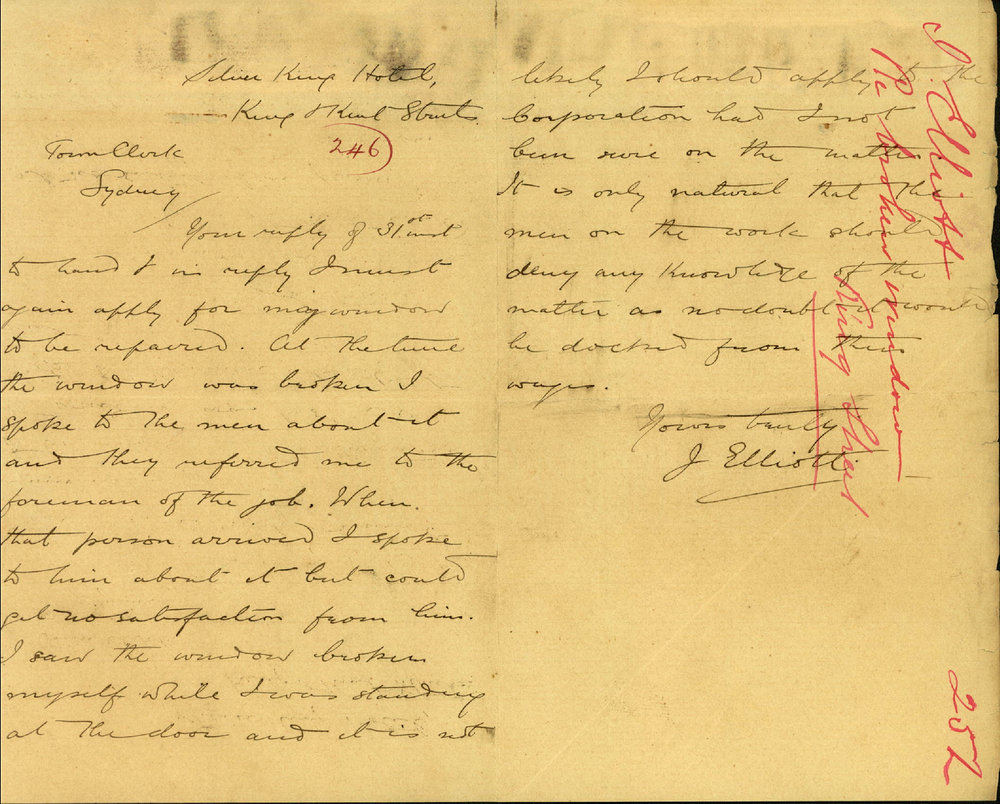 Silver King Hotel,
King & Kent Streets.
246
Town Clerk
Sydney
Your reply of 31st inst
to hand & in reply I must
again apply for my window
to be repaired. At the time
the window was broken I
spoke to the men about it
and they referred me to the
foreman of the job. When
that person arrived I spoke
to him about it but could
get no satisfaction from him.
I saw the window broken
myself while I was standing
at the door and it is not
likely I should apply to the
Corporation had I not
been sure on the matter
It is only natural that the
men on the work should
deny any knowledge of the
matter as no doubt it would
be docked from their
wages.
Yours truly
J Elliott
J. Elliott
Re broken window
King Street
252